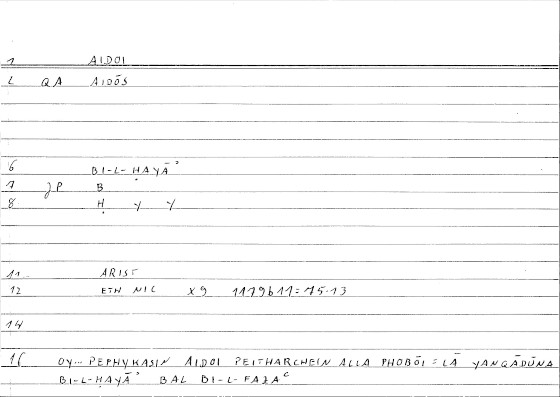 1 AIDOI
2 QA AIDŌS
6 BI-L-ḤAYĀʾ
7 JP B
8 Ḥ Y Y
11. ARIST
12 ETH NIC X9 1179b11=75.13
14
16 OY... PEPHYKASIN AIDOI PEITHARCHEIN ALLA PHOBŌI = LĀ YANQĀDŪNA
BI-L-ḤAYĀʾ BAL BI-L-FAZAʿ